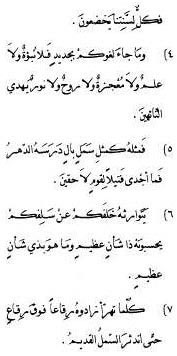 فكلٌّ لِسُنَّتِنا يخضعون.
٤) وما جاء لَغوكم بجديدٍ فلا نبوَّةٌ ولا
علمٌ ولا معجزةٌ ولا روحٌ ولا نورٌ يهدي
التائهين.
٥) فمثله كمثل سملٍ بالٍ درسه الدهر
فما أجدى فتيلاً لقومٍ لاحقين.
٦) يتوارثه خلفكم عن سلفكم
يحسبونه ذا شأنٍ عظيمٍ وما هو بذي شأنٍ
عظيمٍ.
٧) كلَّما تهرَّأ زادوه رقاعاً فوق رقاعٍ
حتى اندثر السمل القديم.